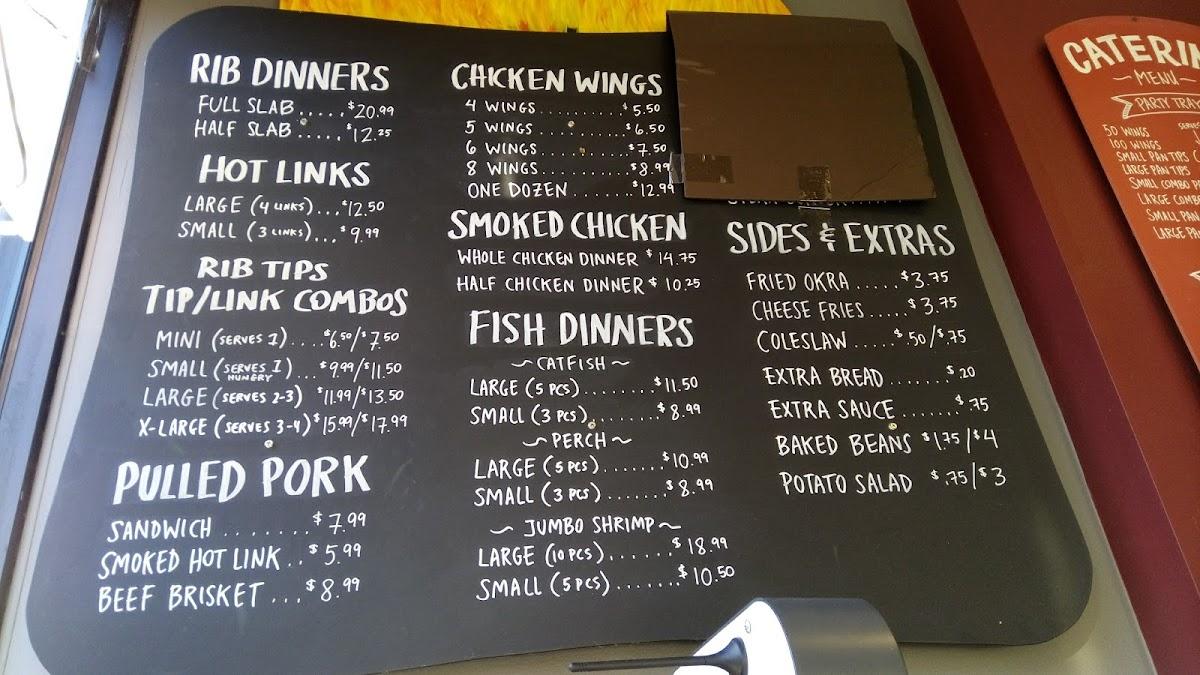 RIB DINNERS
FULL SLAB ..... $20.99
HALF SLAB ..... $12.25
HOT LINKS
LARGE (4 LINKS)... $12.50
SMALL (3 LINKS)... $9.99
RIB TIPS
TIP/LINK COMBOS
MINI (SERVES 1).... $6.50/$7.50
SMALL (SERVES 1 HUNGRY)... $9.99/$11.50
LARGE (SERVES 2-3) $11.99/$13.50
X-LARGE (SERVES 3-4) $15.99/$17.99
PULLED PORK
SANDWICH ........ $7.99
SMOKED HOT LINK .. $5.99
BEEF BRISKET ... $8.99
CHICKEN WINGS
4 WINGS.......... $5.50
5 WINGS.......... $6.50
6 WINGS.......... $7.50
8 WINGS.......... $8.99
ONE DOZEN ....... $12.99
SMOKED CHICKEN
WHOLE CHICKEN DINNER $14.75
HALF CHICKEN DINNER $10.25
FISH DINNERS
~CATFISH~
LARGE (5 PCS)........ $11.50
SMALL (3 PCS)....... $8.99
~PERCH~
LARGE (5 PCS)....... $10.99
SMALL (3 PCS)....... $8.99
~JUMBO SHRIMP~
LARGE (10 PCS)....... $18.99
SMALL (5 PCS)....... $10.50
SIDES & EXTRAS
FRIED OKRA ..... $3.75
CHEESE FRIES ..... $3.75
COLESLAW ..... $.50/$.75
EXTRA BREAD ....... $.20
EXTRA SAUCE ....... $.75
BAKED BEANS $1.75/$4
POTATO SALAD $.75/$3
~MENU~
PARTY TRAY
50 WINGS
100 WINGS
SMALL PAN TIPS
LARGE PAN TIPS
SMALL COMBO
LARGE COMBO
SMALL PAN
LARGE